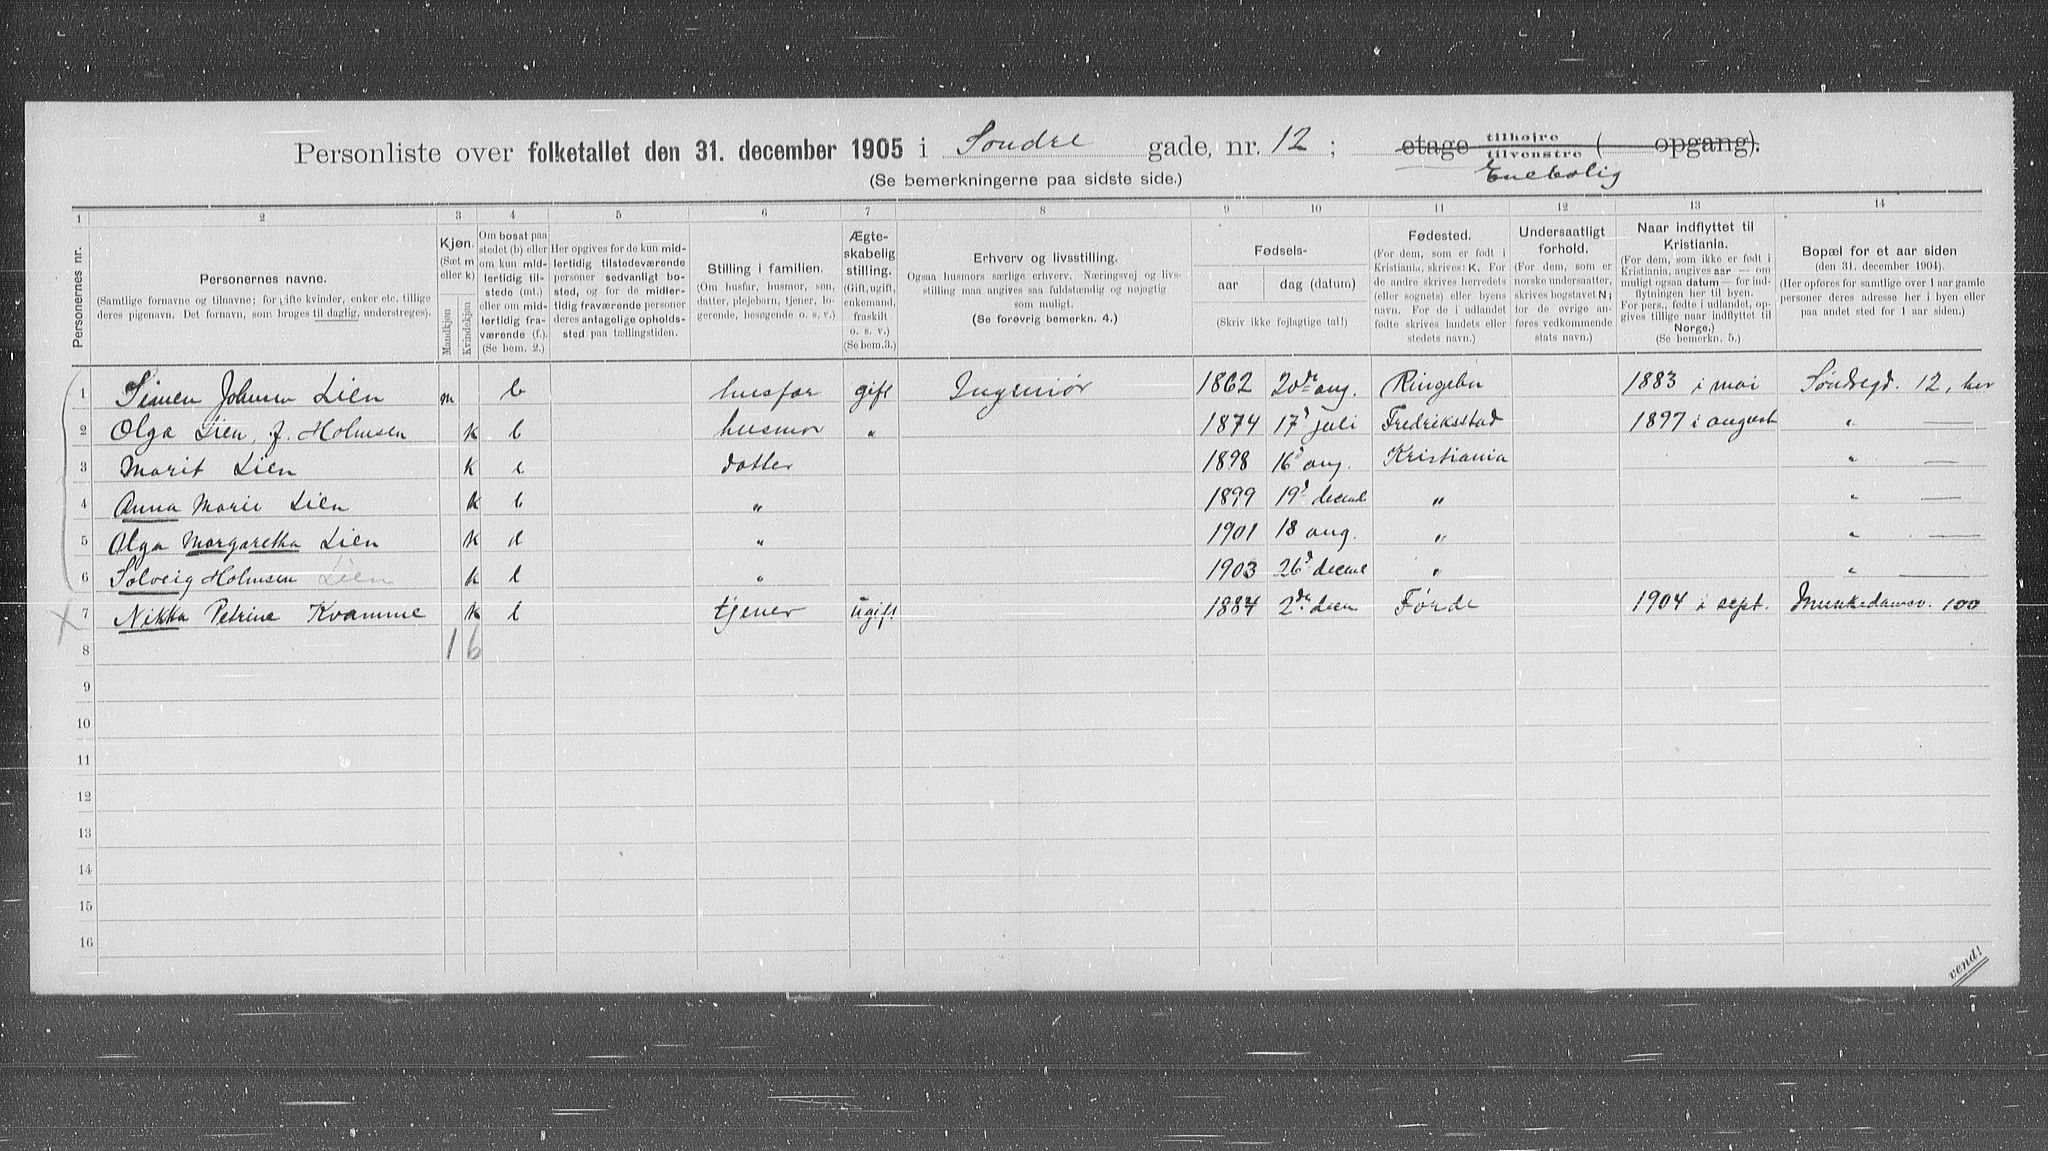 Personliste over folketallet den 31. december 1905 i Søndre gade, nr. 12 ; etage tilhøire tilvenstre ( opgang).
Enebolig
(Se bemerkningerne paa sidste side.)
1 2 3 4 5 6 7 8 9 10 11 12 13 14
Personernes nr.
Personernes navne.
(Samtlige fornavne og tilnavne; for gifte kvinder, enker etc. tillige
deres pigenavn. Det fornavn, som bruges til daglig, understreges).
Kjøn.
(Sæt m
eller k)
Mandkjøn
Kvindekjøn
Om bosat paa
stedet (b) eller
om kun mid-
lertidig til-
stede (mt.)
eller om mid-
lertidig fra-
værende (f.).
(Se bem. 2.)
Her opgives for de kun mid-
lertidig tilstedeværende
personer sedvanligt bo-
sted, og for de midler-
tidig fraværende personer
deres antagelige opholds-
sted paa tællingstiden.
Stilling i familien.
(Om husfar, husmor, søn,
datter, plejebarn, tjener, lo-
gerende, besøgende o. s. v.)
Ægte-
skabelig
stilling.
(Gift, ugift,
enkemand,
fraskilt
o. s. v.)
(Se bem.3.)
Erhverv og livsstilling.
Ogsaa husmors særlige erhverv. Næringsvej og livs-
stilling maa angives saa fuldstændig og nøjagtig
som muligt.
(Se forøvrig bemerkn. 4.)
Fødsels-
aar dag (datum)
(Skriv ikke fejlagtige tal!)
Fødested.
(For dem, som er født i
Kristiania, skrives: K. For
de andre skrives herredets
(eller sognets) eller byens
navn. For de i udlandet
fødte skrives landets eller
stedets navn.)
Undersaatligt
forhold.
(For dem, som er
norske undersaatter,
skrives bogstavet N;
for de øvrige an-
føres vedkommende
stats navn.)
Naar indflyttet til
Kristiania.
(For dem, som ikke er født i
Kristiania, angives aar — om
muligt ogsaa datum — for ind-
flytningen her til byen.
For pers., fødte i udlandet, op-
gives tillige naar indflyttet til
Norge.)
(Se bemerkn. 5.)
Bopæl for et aar siden
(den 31. december 1904).
(Her opføres for samtlige over 1 aar gamle
personer deres adresse her i byen eller
paa andet sted for 1 aar siden.)
1 Simen Johnsen Lien m b husfar gift Ingeniør 1862 20de aug. Ringebu 1883 i mai Søndregd. 12, her
2 Olga Lien, f. Holmsen k b husmor „ 1874 17d juli Fredriksstad 1897 i august „ —
3 Marit Lien k b datter 1898 16d aug. Kristiania „ —
4 Anna Marie Lien k b „ 1899 19d decemb „ „ —
5 Olga Margaretha Lien k b „ 1901 18 aug. „ „ —
6 Solveig Holmsen Lien k b „ 1903 26d decemb „ „ —
7 Nikka Petrine Kvamme k b tjener ugift 1884 2den Førde 1904 i sept. Munkedamsv. 100
8 1 6
9
10
11
12
13
14
15
16
vend!